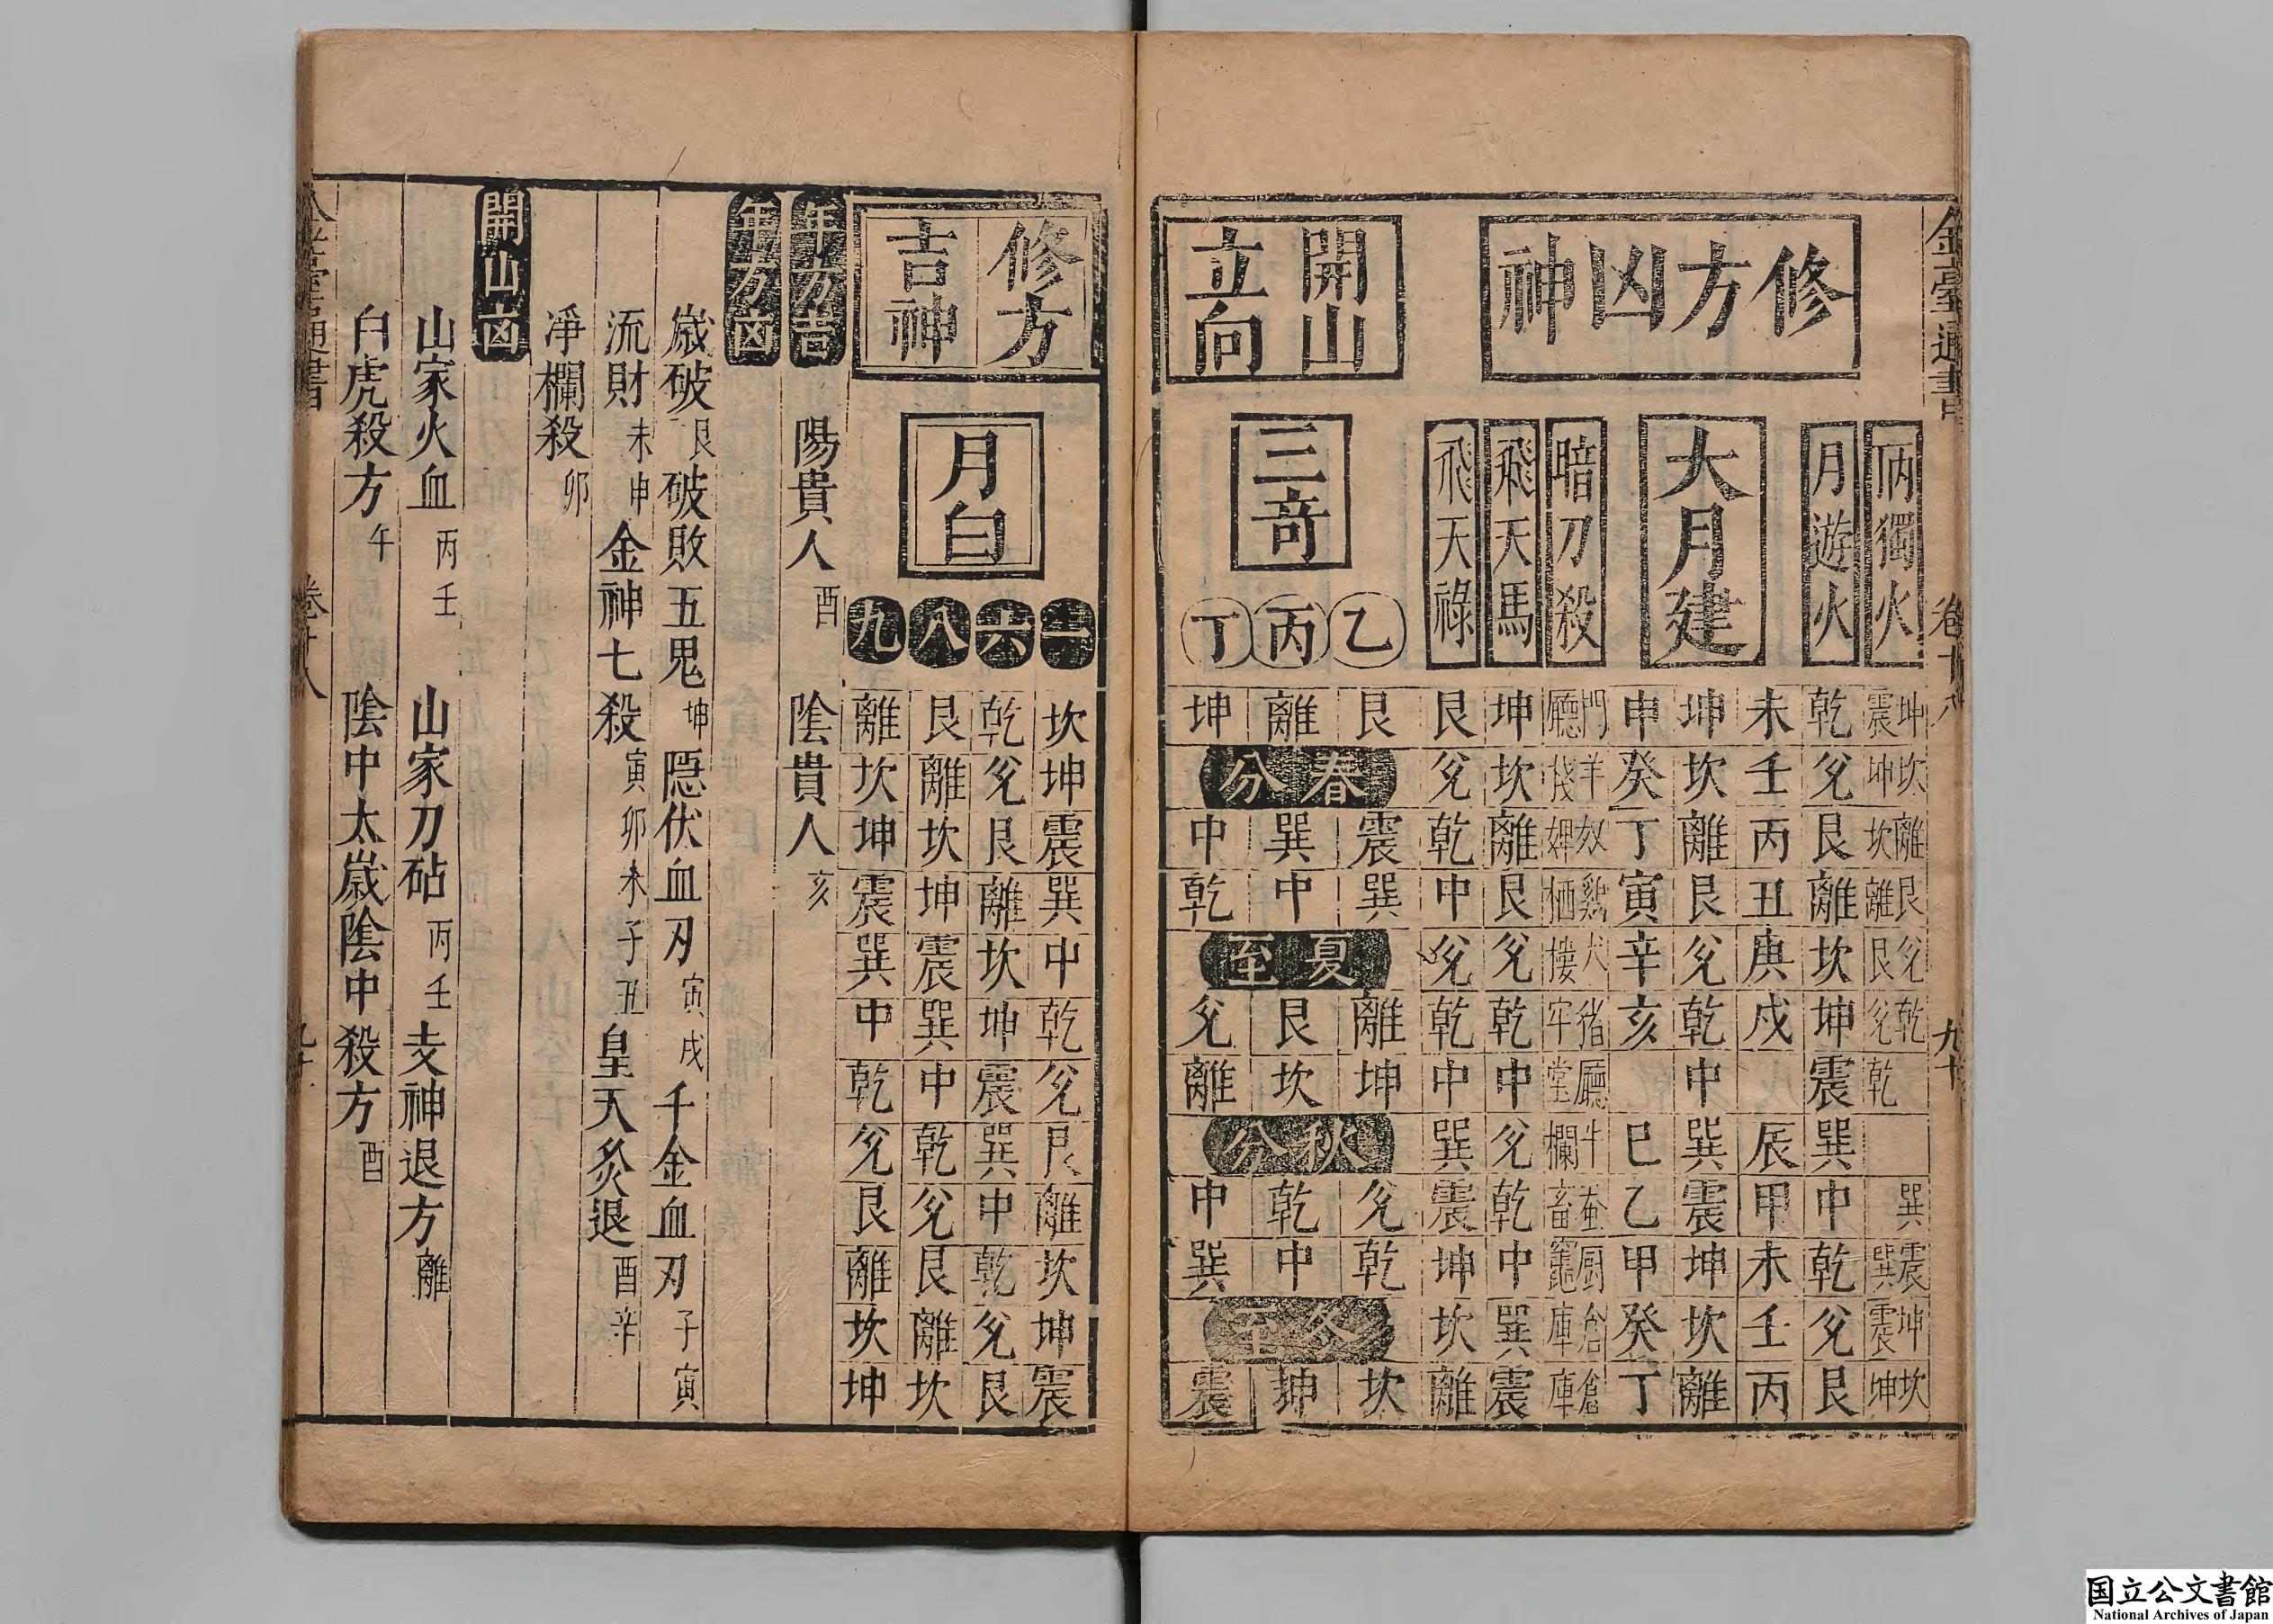 金臺通書 卷十八 九十
修方凶神
丙獨火 坤震 坎坤 離坎 艮離 兌艮 乾兌 乾 巽 震巽 坤震 坎坤
月遊火 乾 兌 艮 離 坎 坤 震 巽 中 乾 兌 艮
大月建
未 壬 丙 丑 庚 戌 辰 甲 未 壬 丙
坤 坎 離 艮 兌 乾 中 巽 震 坤 坎 離
申 癸 丁 寅 辛 亥 巳 乙 申 癸 丁
暗刀殺 門廳 羊棧 奴婢 雞栖 犬樓 豬牢 廳堂 牛欄 蚕畜 厨竈 倉庫 倉庫
飛天馬 坤 坎 離 艮 兌 乾 中 兌 乾 中 巽 震
飛天祿 艮 兌 乾 中 兌 乾 中 巽 震 坤 坎 離
開山
立向
三奇
乙 艮 震 巽 離 坤 兌 乾 坎
丙 離 巽 中 艮 坎 乾 中 坤
丁 坤 中 乾 兌 離 中 巽 震
春分
夏至
秋分
冬至
修方
吉神
月白
一 坎 坤 震 巽 中 乾 兌 艮 離 坎 坤 震
六 乾 兌 艮 離 坎 坤 震 巽 中 乾 兌 艮
八 艮 離 坎 坤 震 巽 中 乾 兌 艮 離 坎
九 離 坎 坤 震 巽 中 乾 兌 艮 離 坎 坤
年方吉 陽貴人酉 陰貴人亥
年方凶
歲破艮 破敗五鬼坤 隱伏血刃寅戌 千金血刃子寅
流財未申 金神七殺寅卯未子丑 皇天炙退酉辛
淨欄殺卯
開山凶
山家火血丙壬 山家刀砧丙壬 支神退方離
白虎殺方午 陰中太歲陰中殺方酉
卷十八
国立公文書館
National Archives of Japan